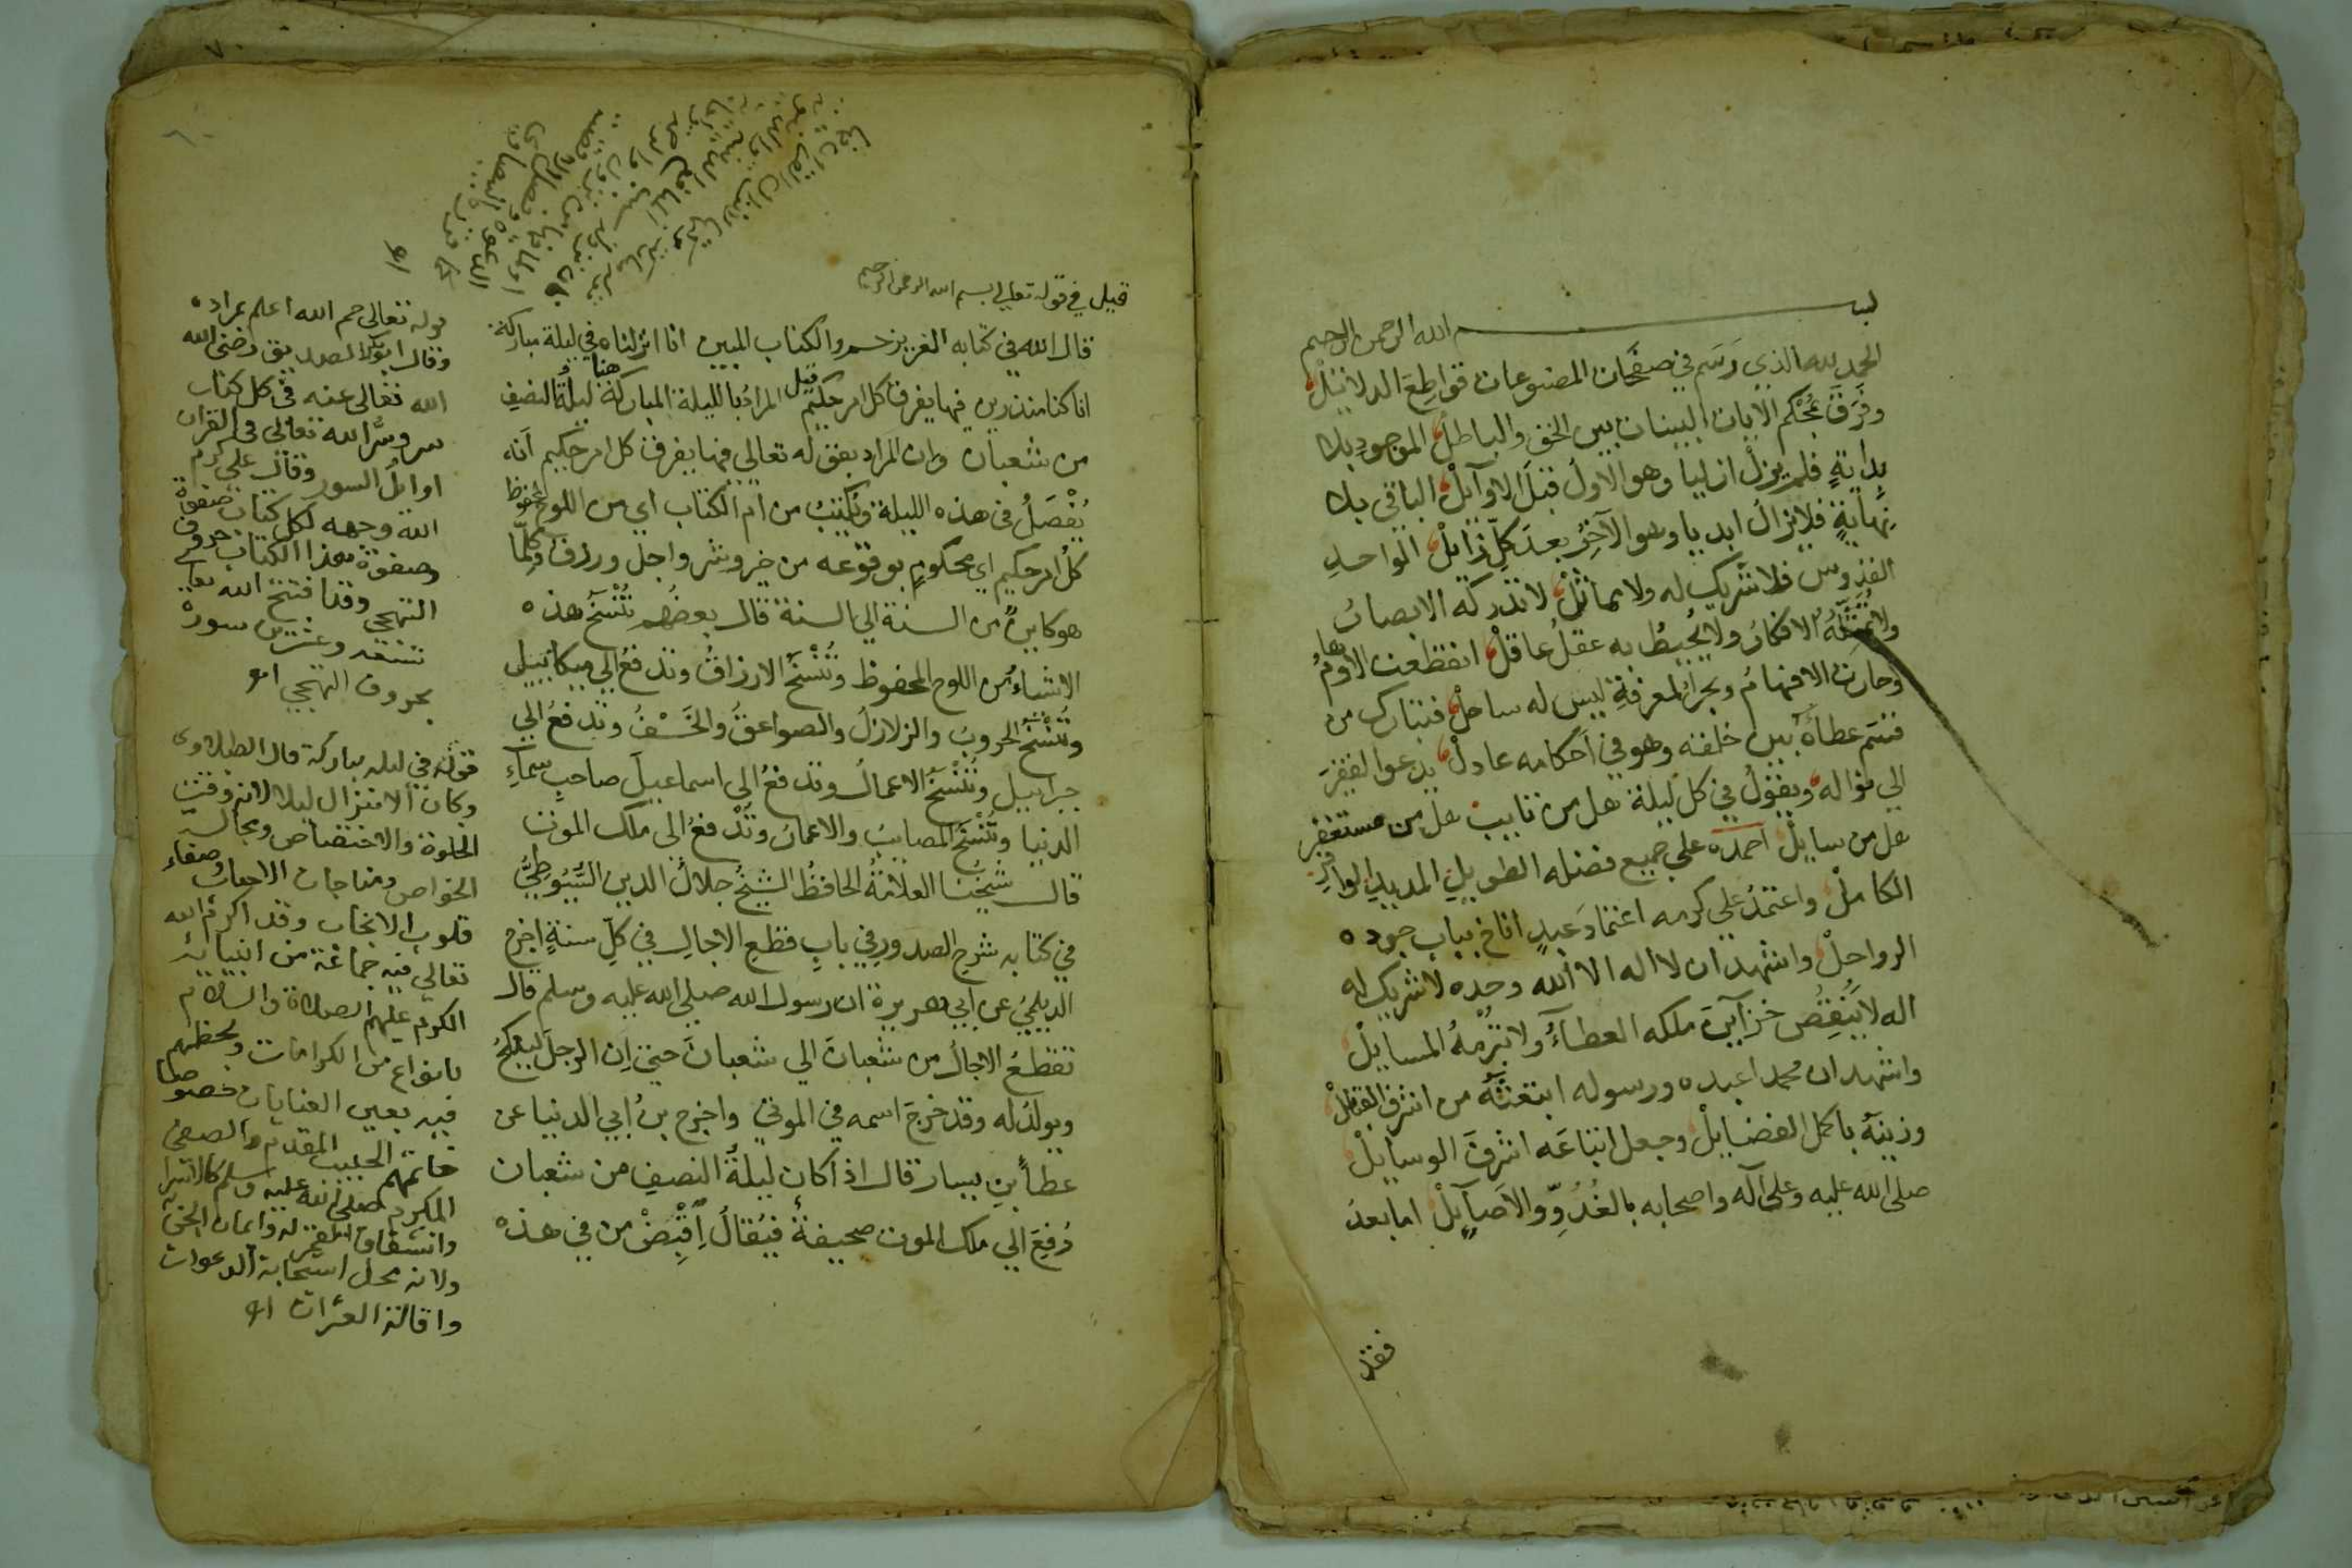 بسم الله الرحمن الرحيم
الحمد لله الذي رَسَم في صفَحَات المصنوعات قواطِعَ الدلائلْ
وفَرَقَ بمُحْكَم الايات البينات بين الحق والباطلْ الموجودِ بلا
بدايَةٍ فلم يزلْ ازليا وهو الاولُ قبْلَ الاوآئلْ الباقي بلا
نِهايَةٍ فلا يزالُ ابديا وهو الآخِرُ بعدَ كلِّ زائلْ الواحدِ
القدوس فلا شريك له ولا مماثلْ لا تدركه الابصارُ
ولا تُمثِّلُهُ الافكارُ ولا يُحيطُ به عقلُ عاقلْ انقطعت الاوهامُ
وحارت الافهامُ وبحرُ المعرفةِ ليس له ساحلْ فتبارك من
قسَّم عطاءَه بين خلقه وهو في احكامه عادلْ يدعوا الفقيرَ
الي نواله ويقولُ في كل ليلة هل من تايب هل من مستغفر
هل من سايلْ احمده علي جميع فضله الطويلِ المديدِ الوافرِ
الكاملْ واعتمدُ علي كرمه اعتمادَ عبدٍ اناخ بباب جوده
الرواحلْ واشهد ان لا اله الا الله وحده لا شريك له
اله لا يُنقِصُ خزآينَ ملكه العطاءُ ولا تُبْرِمُهُ المسايلْ
واشهد ان محمدا عبده ورسوله ابتعثَهُ من اشرف القبائلْ
وزينَهُ باكمل الفضايلْ وجعل اتباعَه اشرفَ الوسايلْ
صلى الله عليه وعلى آله واصحابه بالغُدُوِّ والآصَآيلْ اما بعدُ
فقد
قيل في قوله تعالي بسم الله الرحمن الرحيم
قال الله في كتابه العزيز حم والكتاب المبين انا انزلناه في ليلة مباركة
انا كنا منذرين فيها يفرق كل امر حكيم قيل المرادُ بالليلة المباركة هنا ليلةُ النصفِ
من شعبان وان المراد بقوله تعالي فيها يفرق كل امر حكيم أنه
يُفْصَلُ في هذه الليلة ويُكتبُ من ام الكتاب اي من اللوح المحفوظ
كلُ امر حكيم اي محكومٍ بوقوعه من خير وشر واجل ورزق وكلِّما
هو كاينٌ من السنة الي السنة قال بعضُهم تُنْسَخُ هذه
الاشياءُ من اللوح المحفوظ وتُنْسَخُ الارزاقُ وتدفعُ الي ميكائييل
وتُنْسَخُ الحروبُ والزلازلُ والصواعقُ والخَسْفُ وتدفعُ الي
جبراييل وتُنْسَخُ الاعمالُ وتدفعُ الي اسماعييلَ صاحبِ سماءِ
الدنيا وتُنْسَخُ المصايبُ والاعمارُ وتُدْفعُ الى ملك الموت
قال شيخُنا العلامَةُ الحافظُ الشيخُ جلالُ الدين السُّيُوطِيُّ
في كتابه شرحِ الصدورِ في بابِ قطعِ الاجالِ في كلِّ سنةٍ اخرج
الديلميُ عن ابي هريرة ان رسول الله صلي الله عليه وسلم قال
تقطعُ الاجالُ من شعبانَ الي شعبانَ حتي اِن الرجلَ لينكحُ
ويولدُ له وقد خرجَ اسمه في الموتي واخرج بنُ ابي الدنيا عن
عطاءِ بنِ يسار قال اذا كان ليلةُ النصفِ من شعبان
دُفِعَ الي ملك الموت صحيفةٌ فيُقالُ اِقْبِضْ من في هذه
قوله تعالى حم الله اعلم بمراده
وقال ابو بكر الصديق رضي الله
الله تعالى عنه في كل كتاب
سر وسرُّ الله تعالى في القران
اوائلُ السور وقال علي كرم
الله وجهه لكل كتاب صفوة
وصفوة هذا الكتاب حروف
التهجي وقد افتتح الله تعالى
وعشرين سورة
بحروف التهجي اهـ
قوله في ليلة مباركة قال
وكان الانزال ليلا لانه وقت
الخلوة والاختصاص ومجالسة
الخواص ومناجات الاحباب وصفاء
قلوب الانجاب وقد اكرم الله
تعالي فيه جماعة من انبيائه
الكرم عليهم الصلاة والسلام
بانواع من الكرامات
فيه بعين العنايات خصوصا
خاتمهم الحبيب المقدم والصفي
المكرم صلى الله عليه وسلم كالاسرا
وانشقاق القمر له وايمان الجن به
ولانه محل استجابة الدعوات
واقالة العثرات اهـ